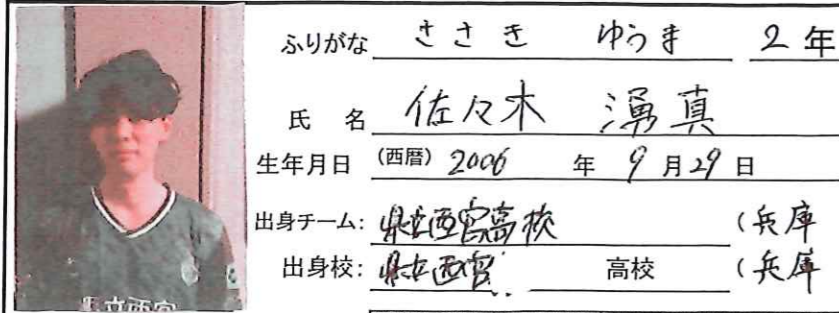 ふりがな ささき ゆうま 2年
氏名 佐々木 湧真
生年月日 (西暦) 2006 年 9 月 29 日
出身チーム: 県立西宮高校 (兵庫
出身校: 県立西宮 高校 (兵庫
県立西宮